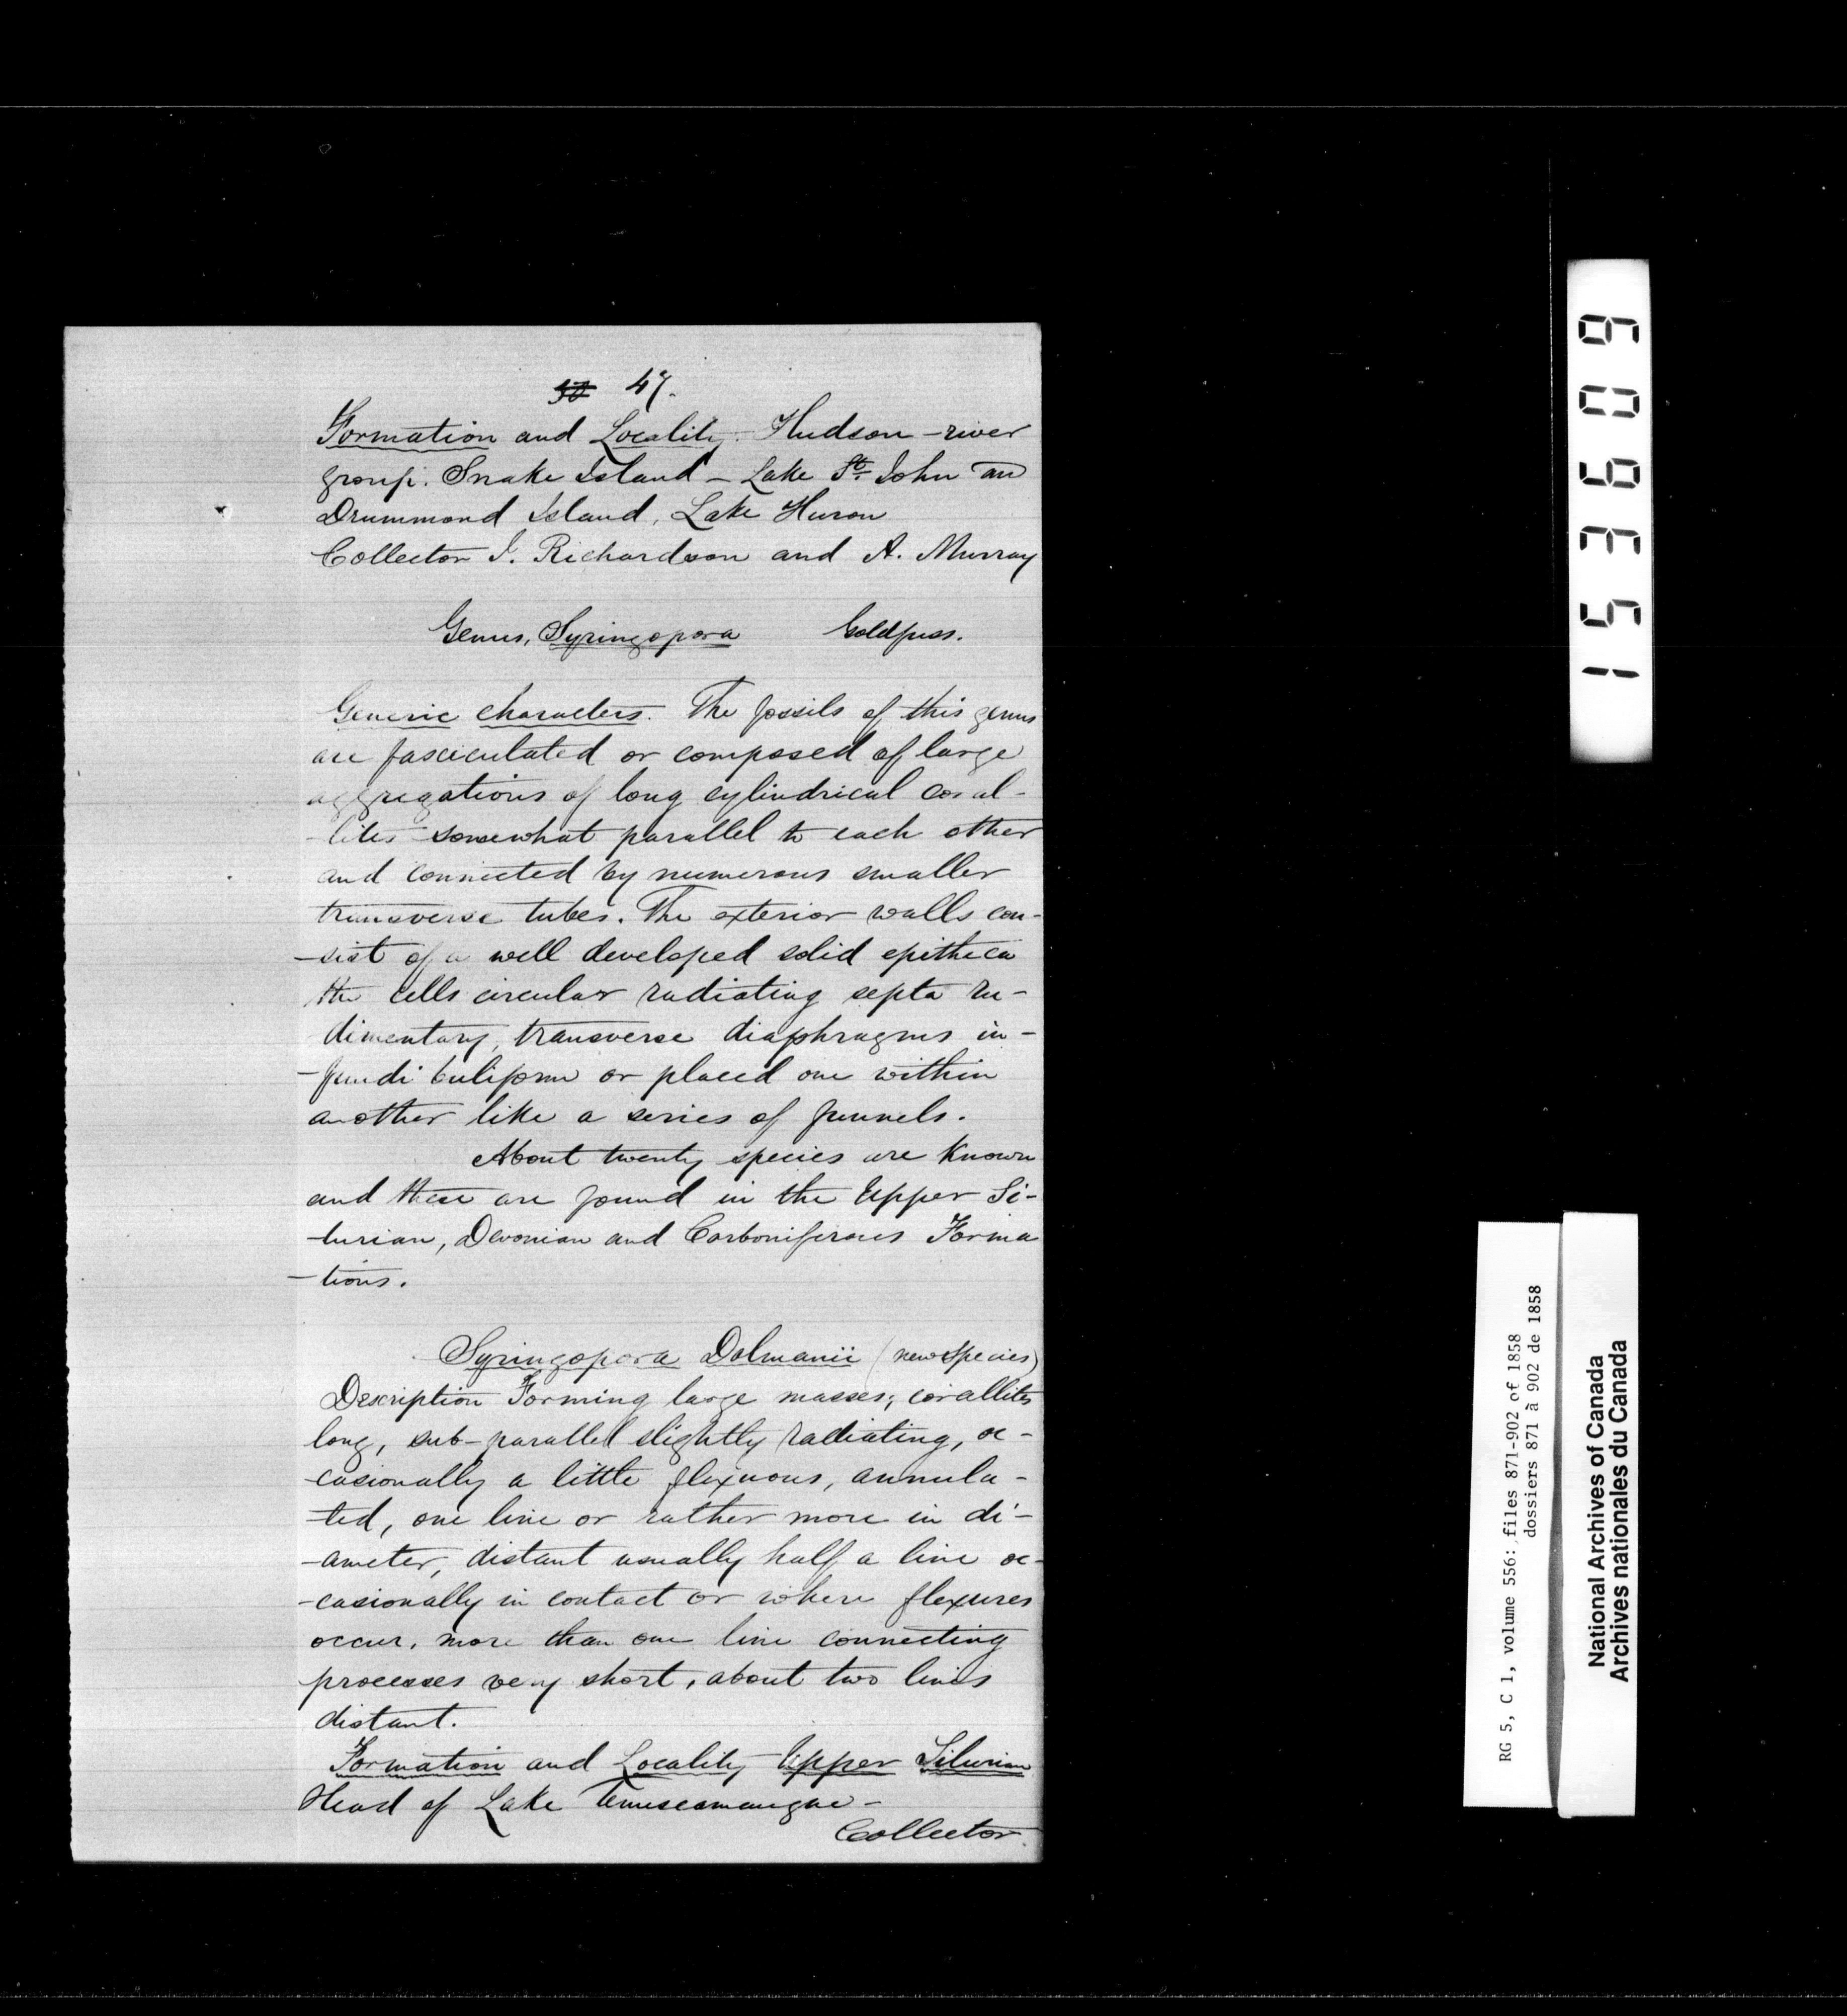 50 47.
Formation and Locality. Hudson-river
group. Snake Island – Lake St. John an
Drummond Island, Lake Huron
Collector J. Richardson and A. Murray
Genus, Syringopora Goldfuss.
Generic characters. The fossils of this genus
are fasciculated or composed of large
aggregations of long cylindrical coral-
-lites somewhat parallel to each other
and connected by numerous smaller
transverse tubes. The exterior walls con-
-sist of a well developed solid epitheca
the cells circular radiating septa ru-
dimentary, transverse diaphragms in-
-fundi buliform or placed one within
another like a series of funnels.
About twenty species are known
and these are found in the Upper Si-
-lurian, Devonian and Carboniferous Forma
-tions.
Syringopora Dalmanii (new species)
Description Forming large masses; corallites
long, sub-parallel slightly radiating, oc-
-casionally a little flexuous, annula-
-ted, one line or rather more in di-
-ameter, distant usually half a line oc-
-casionally in contact or where flexures
occur, more than one line connecting
processes very short, about two lines
distant.
Formation and Locality Upper Silurian
Head of Lake Temiscamangue –
Collector
153609
RG 5, C 1, volume 556: files 871-902 of 1858
dossiers 871 à 902 de 1858
National Archives of Canada
Archives nationales du Canada